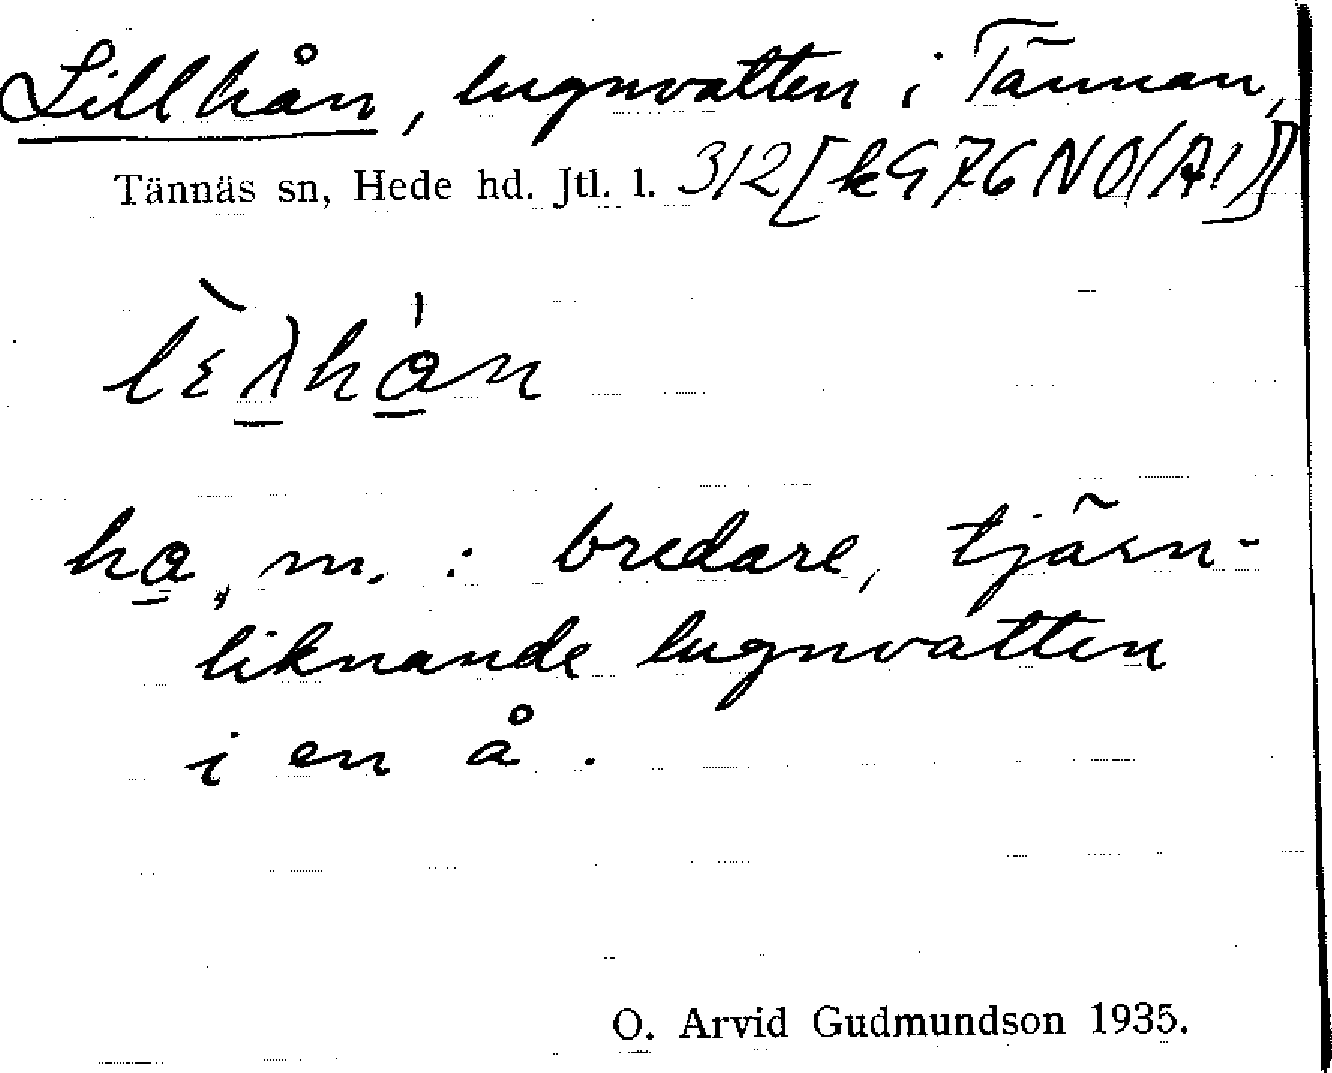 Lillhån, lugnvatten i Tännan,
Tännäs sn, Hede hd. Jtl. l. 312[k976NO(A1)]
lɛ̀λhə̲́n
ha̲, m. : bredare, tjärn-
liknande lugnvatten
i en å.
O. Arvid Gudmundson 1935.